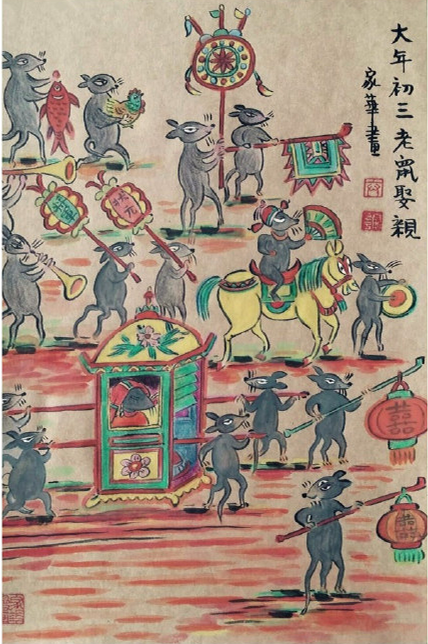 大年初三老鼠娶親
家華畫
状元
囍
囍